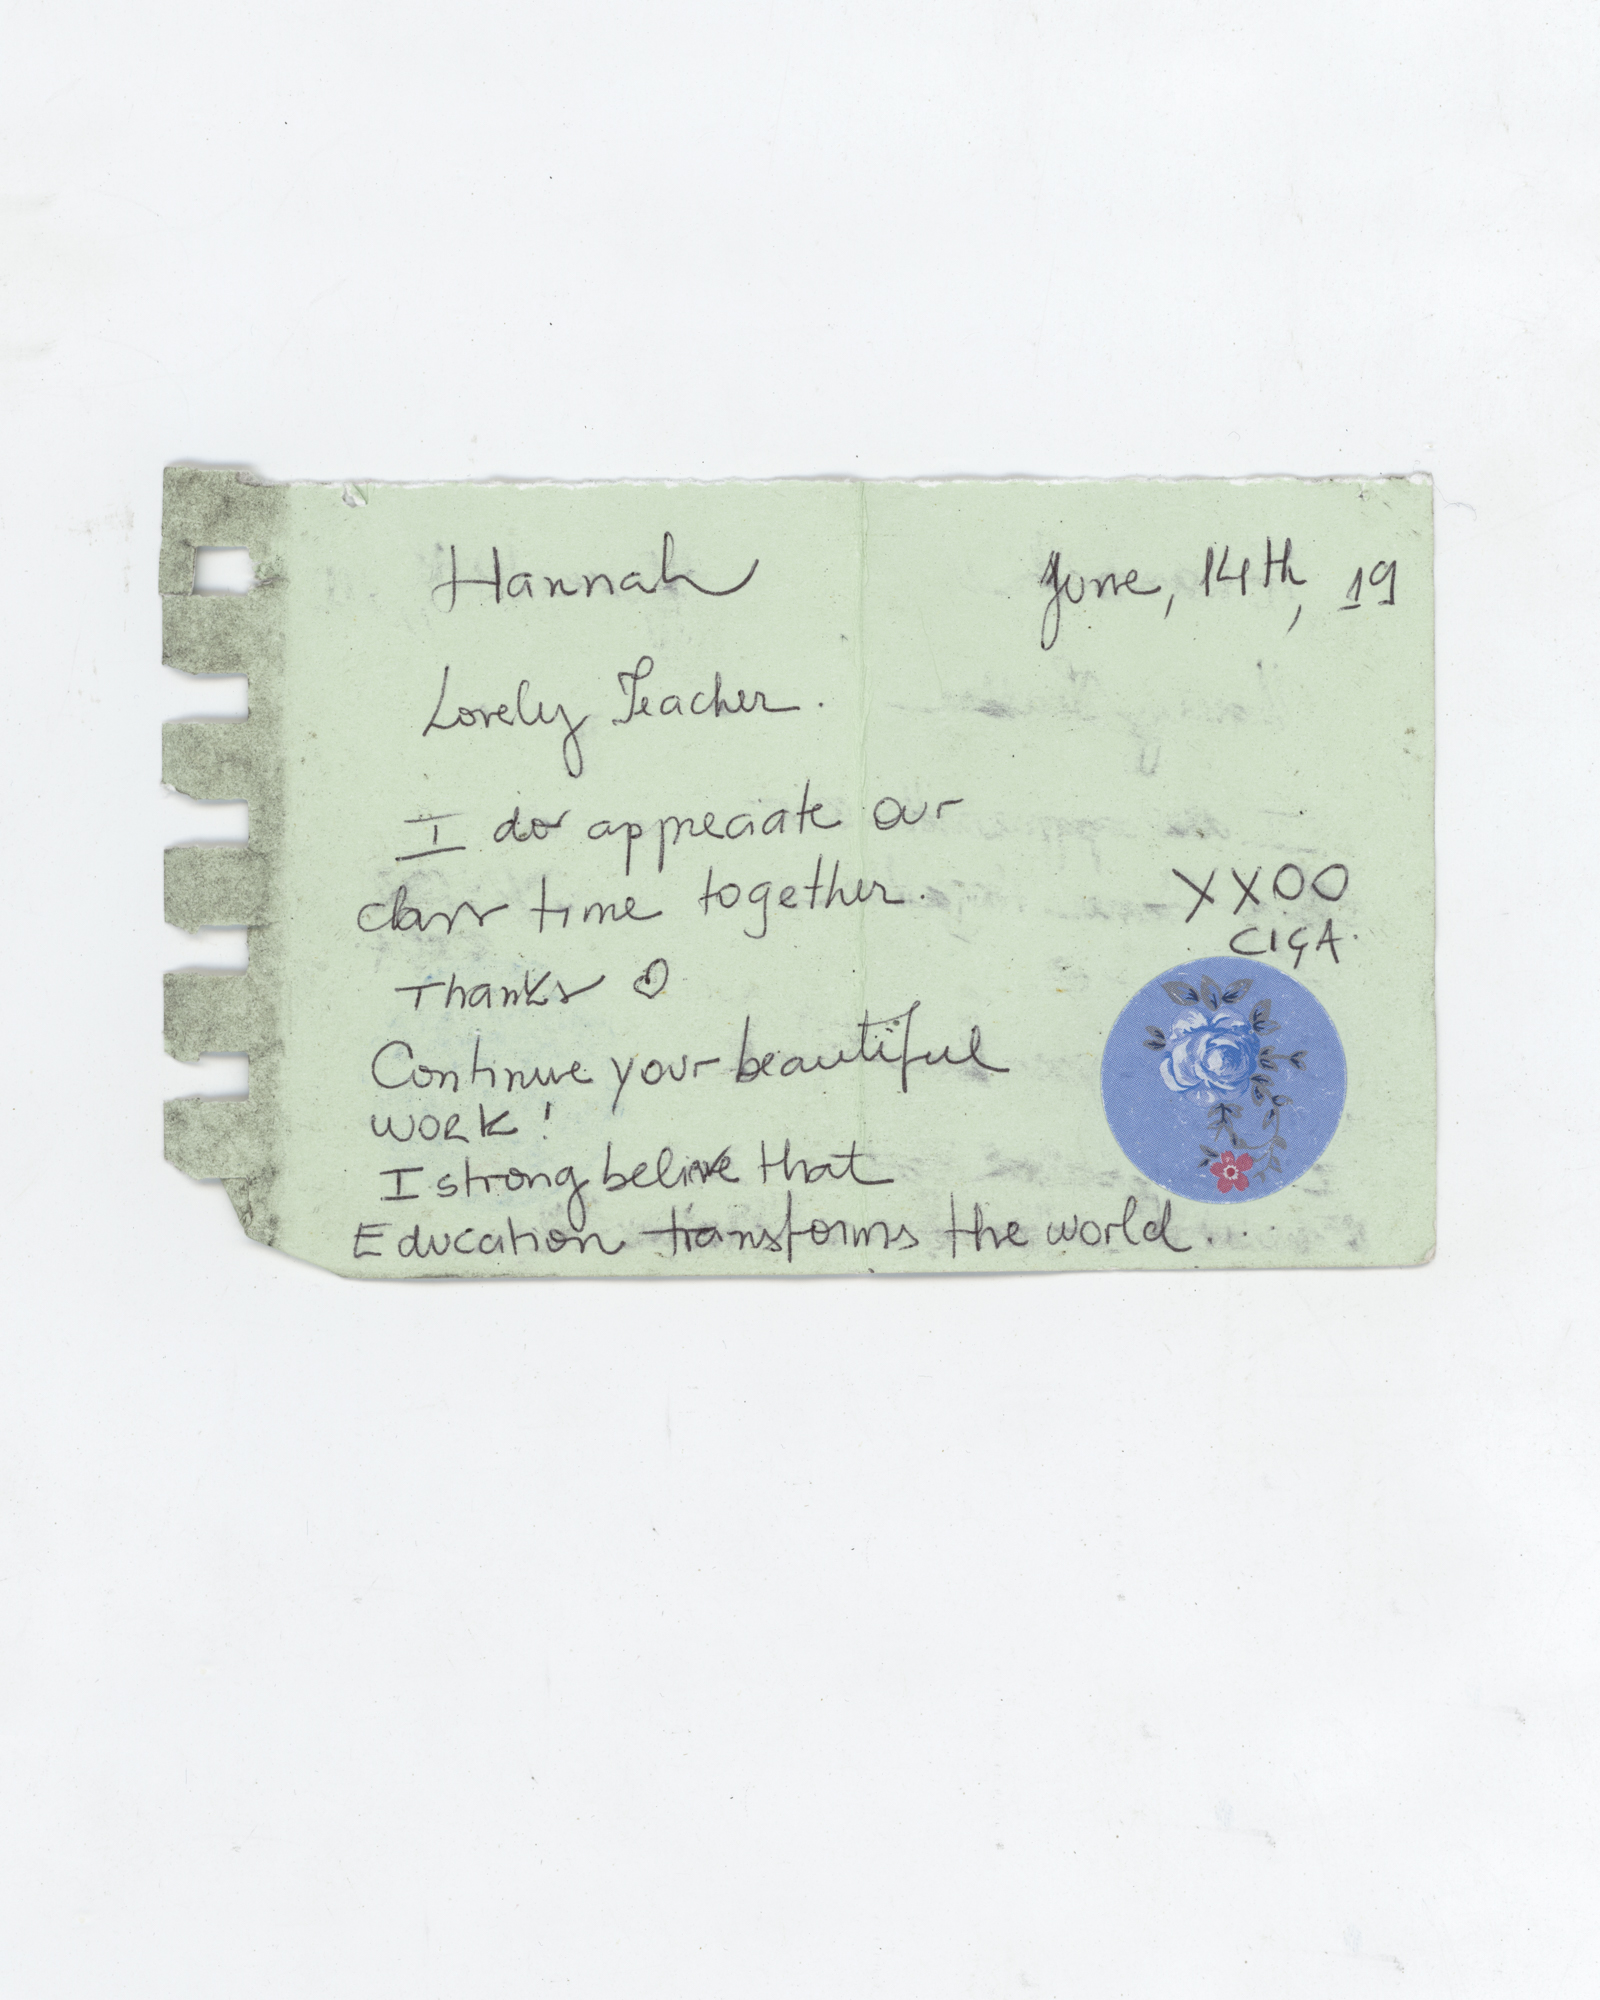 Hannah
June, 14th, 19
Lovely Teacher.
I do appreciate our
class time together.
XXOO
CIÇA.
Thanks ♡
Continue your beautiful
work!
I strong belive that
Education transforms the world...